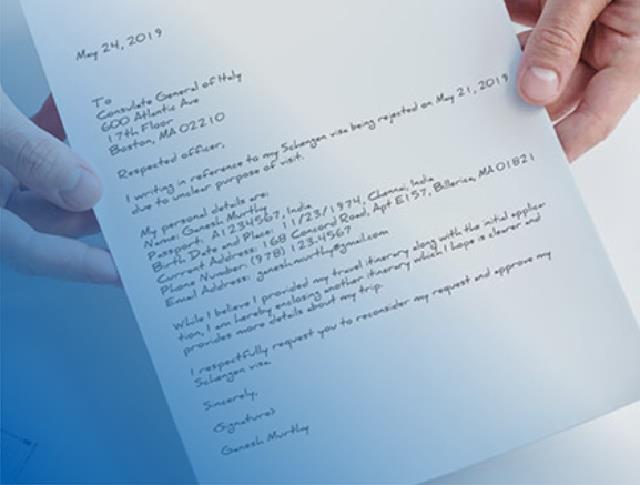 May 24, 2019
To
Consulate General of Italy
600 Atlantic Ave
17th Floor
Boston, MA 02210
Respected officer,
I writing in reference to my Schengen visa being rejected on May 21, 2019
due to unclear purpose of visit.
My personal details are:
Name: Ganesh Murthy
Passport: A1234567, India
Birth Date and Place: 11/23/1974, Chennai, India
Current Address: 168 Concord Road, Apt E157, Billerica, MA 01821
Phone Number: (978) 123.4567
Email Address: ganeshmurthy@gmail.com
While I believe I provided my travel itinerary along with the initial applica-
tion, I am hereby enclosing another itinerary which I hope is clearer and
provides more details about my trip.
I respectfully request you to reconsider my request and approve my
Schengen visa.
Sincerely,
(Signature)
Ganesh Murthy